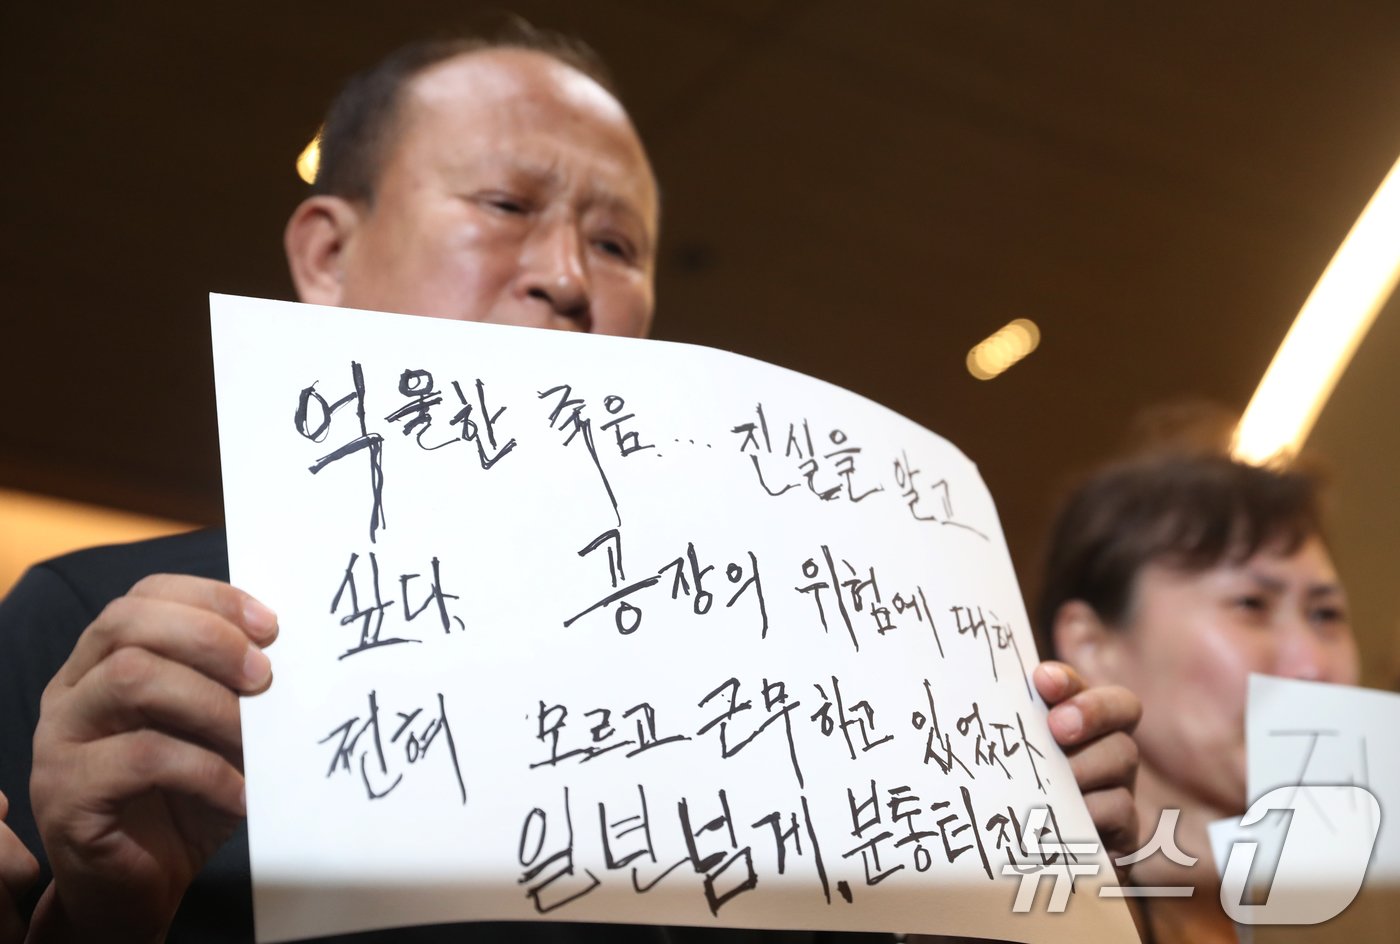 억울한 죽음... 진실을 알고
싶다. 공장의 위험에 대해
전혀 모르고 근무하고 있었다.
일년넘게. 분통터진다
뉴스1